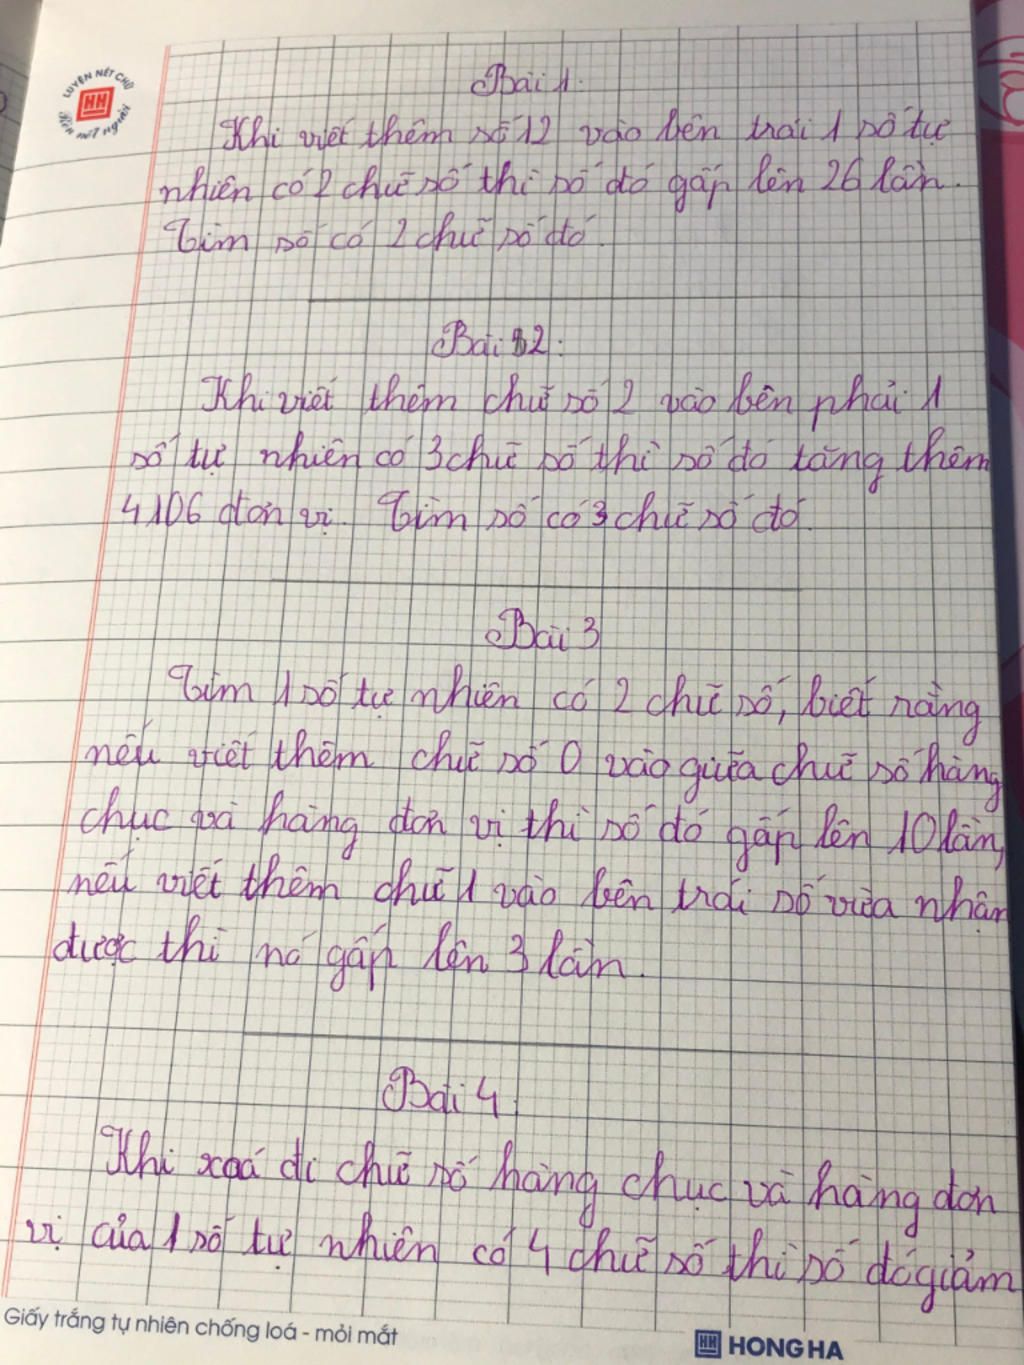 LUYỆN NÉT CHỮ
HH
Rèn nết người
Bài 1:
Khi viết thêm số 12 vào bên trái 1 số tự
nhiên có 2 chữ số thì số đó gấp lên 26 lần.
Tìm số có 2 chữ số đó.
Bài 2:
Khi viết thêm chữ số 2 vào bên phải 1
số tự nhiên có 3 chữ số thì số đó tăng thêm
4106 đơn vị. Tìm số có 3 chữ số đó.
Bài 3
Tìm 1 số tự nhiên có 2 chữ số, biết rằng
nếu viết thêm chữ số 0 vào giữa chữ số hàng
chục và hàng đơn vị thì số đó gấp lên 10 lần,
nếu viết thêm chữ 1 vào bên trái số vừa nhận
được thì nó gấp lên 3 lần.
Bài 4:
Khi xoá đi chữ số hàng chục và hàng đơn
vị của 1 số tự nhiên có 4 chữ số thì số đó giảm
Giấy trắng tự nhiên chống loá - mỏi mắt
HH HONG HA